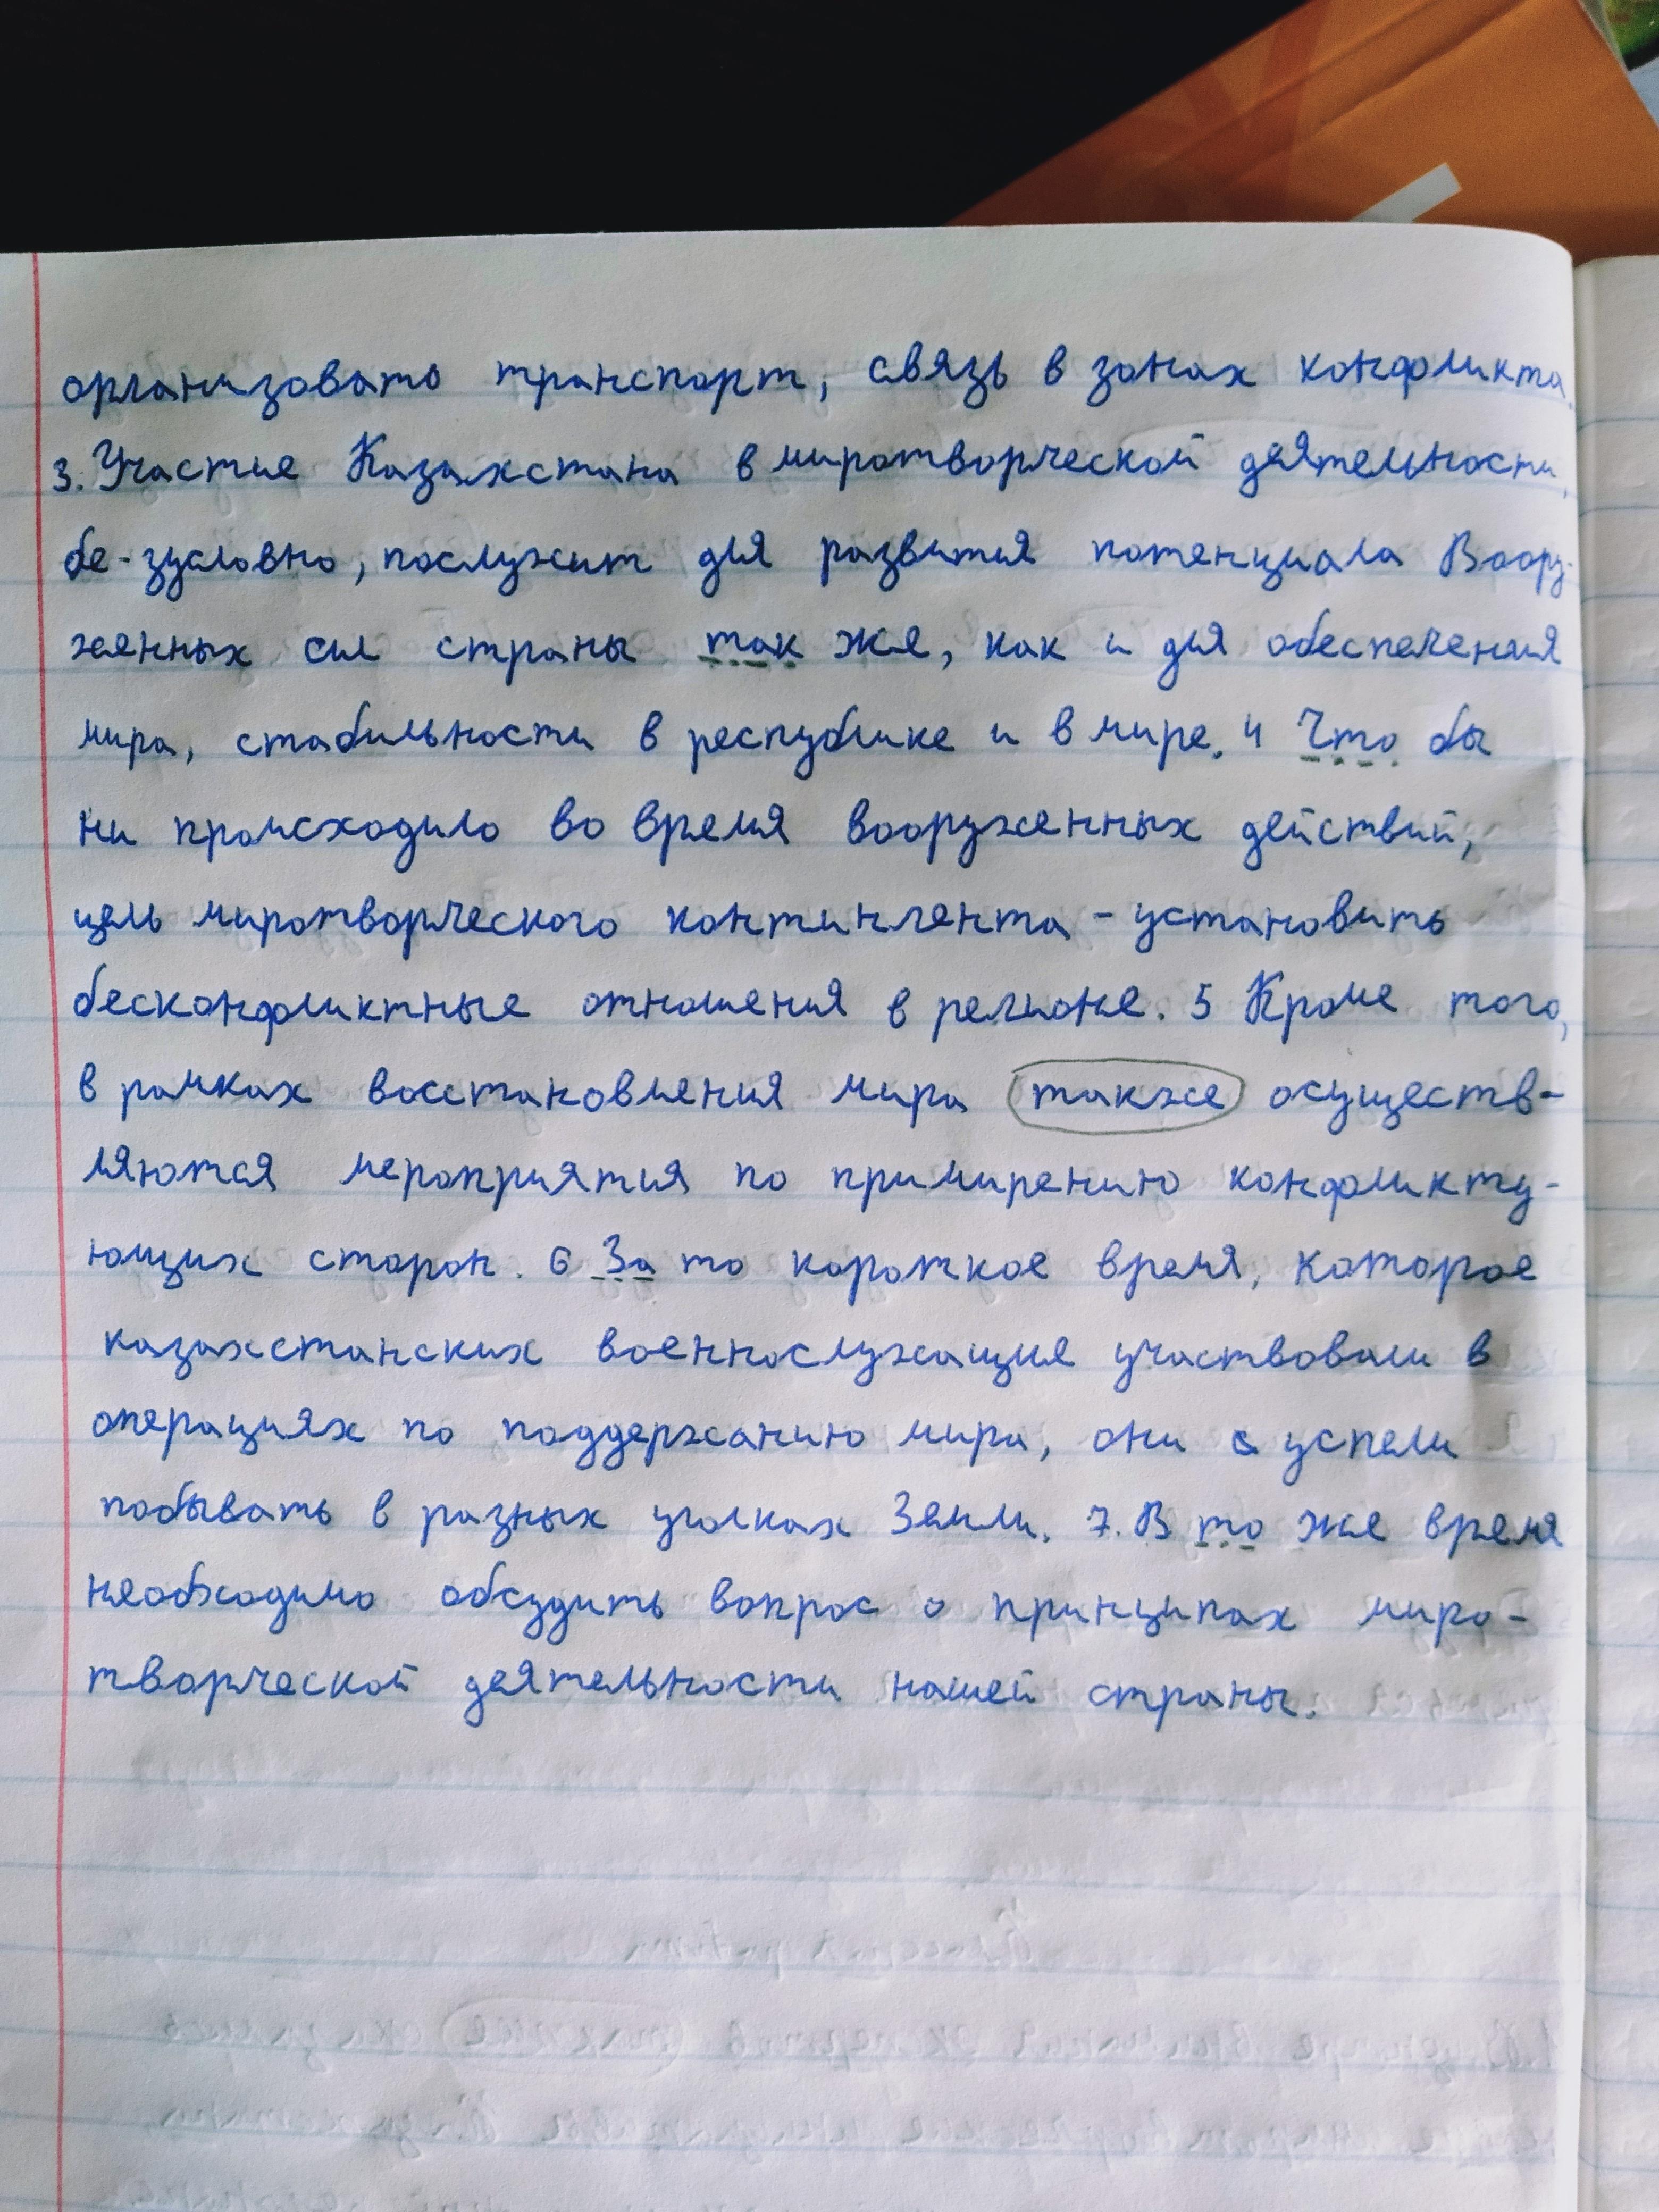 организовато транспорт, связь в зонах конфликта.
3. Участие Казахстана в миротворческой деятельности,
бе-зусловно, послужит для развития потенциала Воору-
женных сил страны так же, как и для обеспечения
мира, стабильности в республике и в мире. 4 Что бы
ни происходило во время вооруженных действий,
цель миротворческого контингента - установить
бесконфликтные отношения в регионе. 5 Кроме того,
в рамках восстановления мира также осуществ-
ляются мероприятия по примирению конфликту-
ющих сторон. 6 За то короткое время, которое
казахстанских военнослужащие участвовали в
операциях по поддержанию мира, они успели
побывать в разных уголках Земли. 7. В то же время
необходимо обсудить вопрос о принципах миро-
творческой деятельности нашей страны.